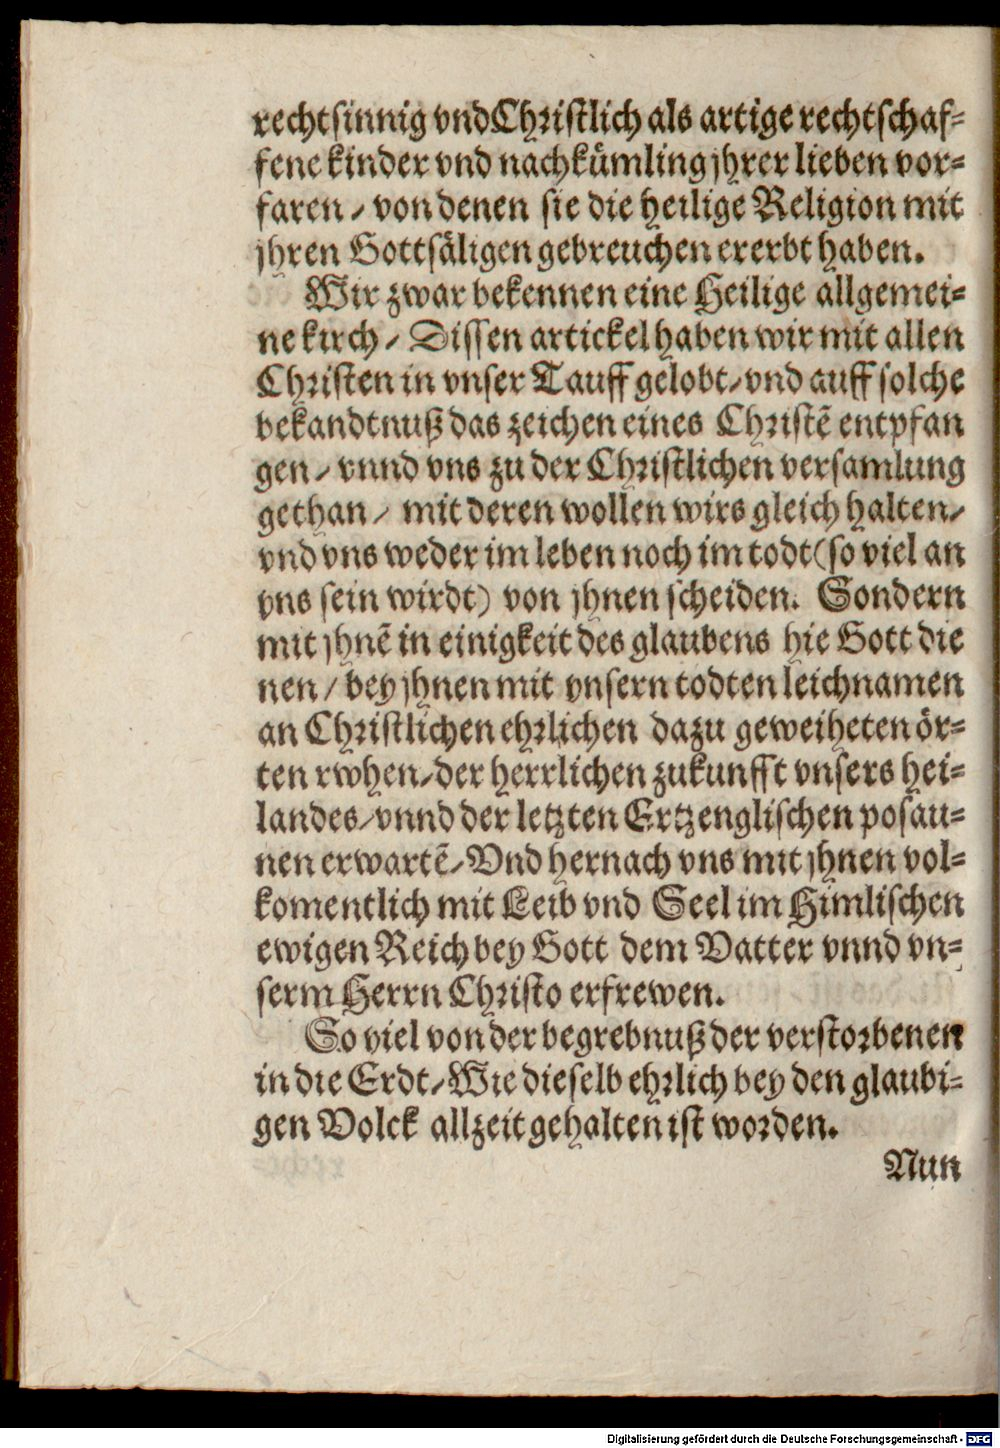 rechtsinnig vnd Christlich als artige rechtschaf-
fene kinder vnd nachkümling jhrer lieben vor-
faren / von denen sie die heilige Religion mit
jhren Gottsäligen gebreuchen ererbt haben.
Wir zwar bekennen eine Heilige allgemei-
ne kirch / Dissen artickel haben wir mit allen
Christen in vnser Tauff gelobt / vnd auff solche
bekandtnuß das zeichen eines Christẽ entpfan
gen / vnnd vns zu der Christlichen versamlung
gethan / mit deren wollen wirs gleich halten /
vnd vns weder im leben noch im todt (so viel an
vns sein wirdt) von jhnen scheiden. Sondern
mit jhnẽ in einigkeit des glaubens hie Gott die
nen / bey jhnen mit vnsern todten leichnamen
an Christlichen ehrlichen dazu geweiheten ör-
ten rwhen / der herrlichen zukunfft vnsers hei-
landes / vnnd der letzten Ertzenglischen posau-
nen erwartẽ / Vnd hernach vns mit jhnen vol-
komentlich mit Leib vnd Seel im Himlischen
ewigen Reich bey Gott dem Vatter vnnd vn-
serm Herrn Christo erfrewen.
So viel von der begrebnuß der verstorbenen
in die Erdt / Wie dieselb ehrlich bey den glaubi-
gen Volck allzeit gehalten ist worden.
Nun
Digitalisierung gefördert durch die Deutsche Forschungsgemeinschaft - DFG